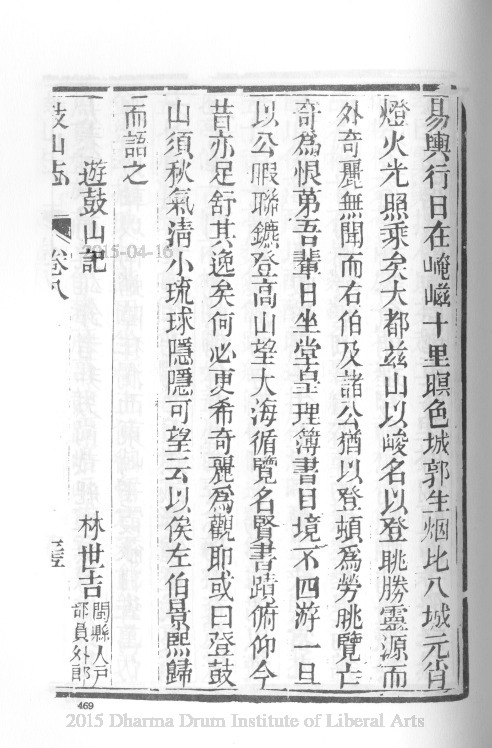 易輿行日在崦嵫十里暝色城郭生烟比入城元宵
燈火光照乘矣大都兹山以峻名以登眺勝靈源而
外奇麗無聞而右伯及諸公猶以登頓爲勞眺覽亡
奇爲恨第吾輩日坐堂皇理簿書目境不四游一旦
以公暇聯鑣登高山望大海循覽名賢書蹟俯仰今
昔亦足舒其逸矣何必更希奇麗爲觀耶或曰登鼓
山須秋氣淸小琉球隱隱可望云以俟左伯景熙歸
而語之
遊鼓山記 林世吉 閩縣人戸部員外郎
鼓山志 卷八
2015-04-16
469
2015 Dharma Drum Institute of Liberal Arts